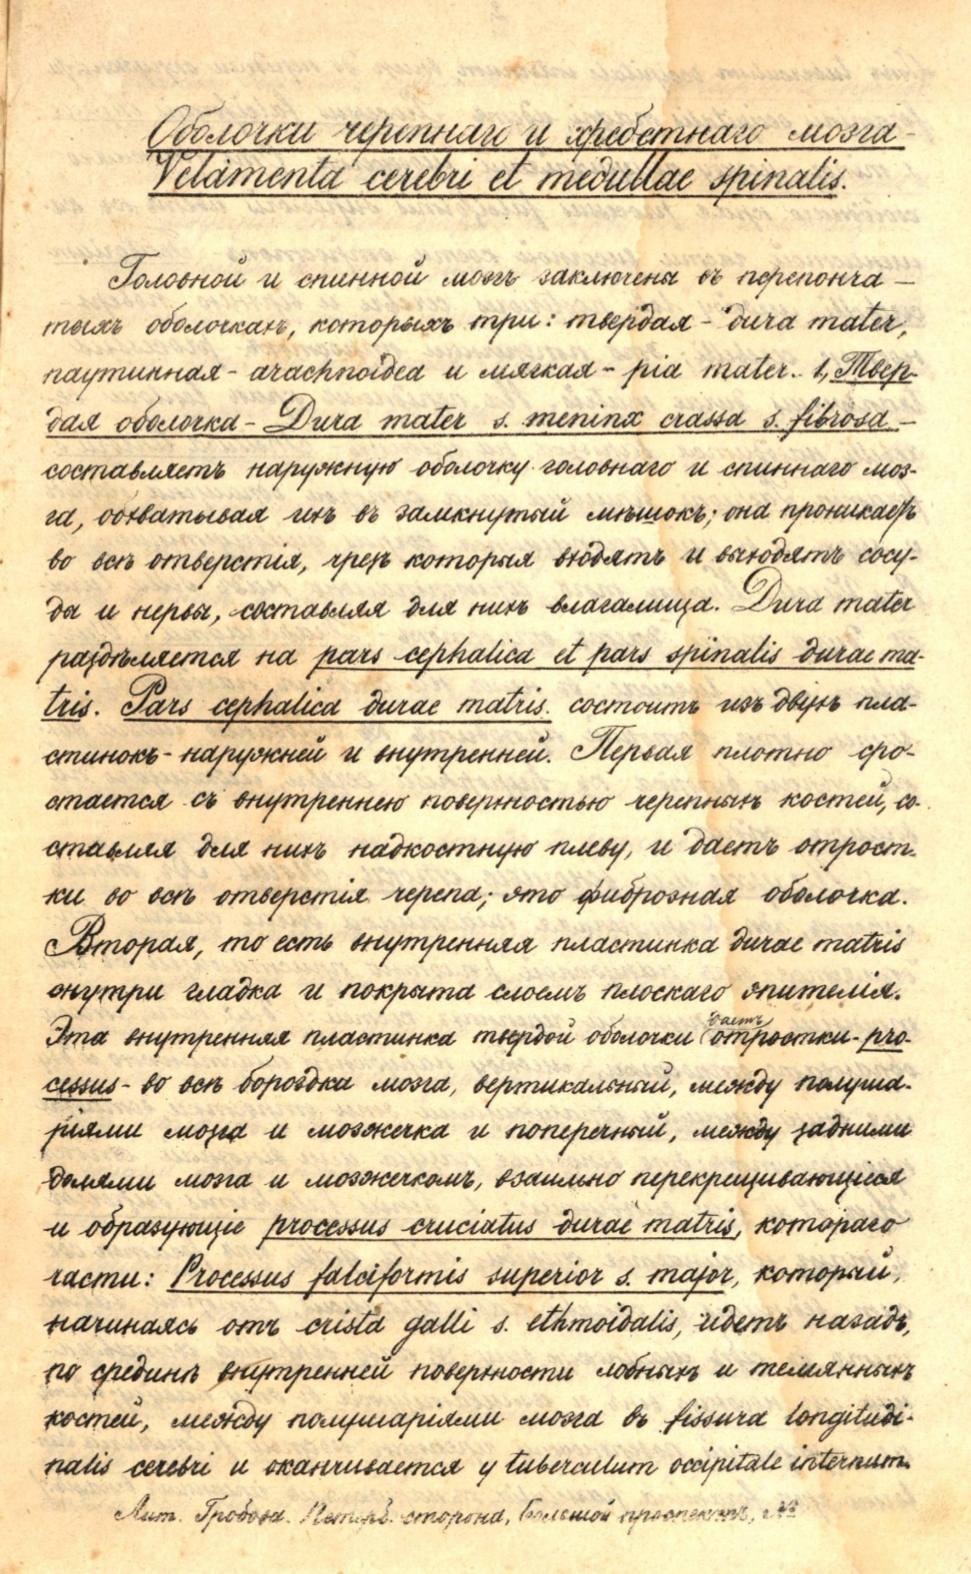 Оболочки черепнаго и хребетнаго мозга-
Velamenta cerebri et medullae spinalis.
Головной и спинной мозгъ заключены въ перепонча-
тыхъ оболочкахъ, которыхъ три: твердая - dura mater,
паутинная - arachnoidea и мягкая - pia mater. 1, Твер-
дая оболочка - Dura mater s. meninx crassa s. fibrosa -
составляетъ наружную оболочку головнаго и спиннаго моз-
га, обхватывая ихъ въ замкнутый мѣшокъ; она проникаетъ
во всѣ отверстія, чрезъ которыя входятъ и выходятъ сосу-
ды и нервы, составляя для нихъ влагалища. Dura mater
раздѣляется на pars cephalica et pars spinalis durae ma-
tris. Pars cephalica durae matris. состоитъ изъ двухъ пла-
стинокъ - наружней и внутренней. Первая плотно сро-
стается съ внутреннею поверхностью черепныхъ костей, со-
ставляя для нихъ надкостную плеву, и даетъ отрост-
ки во всѣ отверстія черепа; это фиброзная оболочка.
Вторая, то есть внутренняя пластинка durae matris
внутри гладка и покрыта слоемъ плоскаго эпителія.
Эта внутренняя пластинка твердой оболочки даетъ отростки - pro-
cessus - во всѣ бороздка мозга, вертикальный, между полуша-
ріями мозга и мозжечка и поперечный, между задними
долями мозга и мозжечкомъ, взаимно перекрещивающіеся
и образующіе processus cruciatus durae matris, котораго
части: Processus falciformis superior s. major, который,
начинаясь отъ crista galli s. ethmoidalis, идетъ назадъ,
по срединѣ внутренней поверхности лобныхъ и темянныхъ
костей, между полушаріями мозга въ fissura longitudi-
nalis cerebri и оканчивается у tuberculum occipitale internum.
Лит. Гробова. Петерб. сторона, Большой проспектъ, №